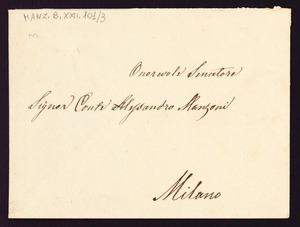 MANZ. B. XXII. 101/3
Onorevole Senatore
Signor Conte Alessandro Manzoni
Milano